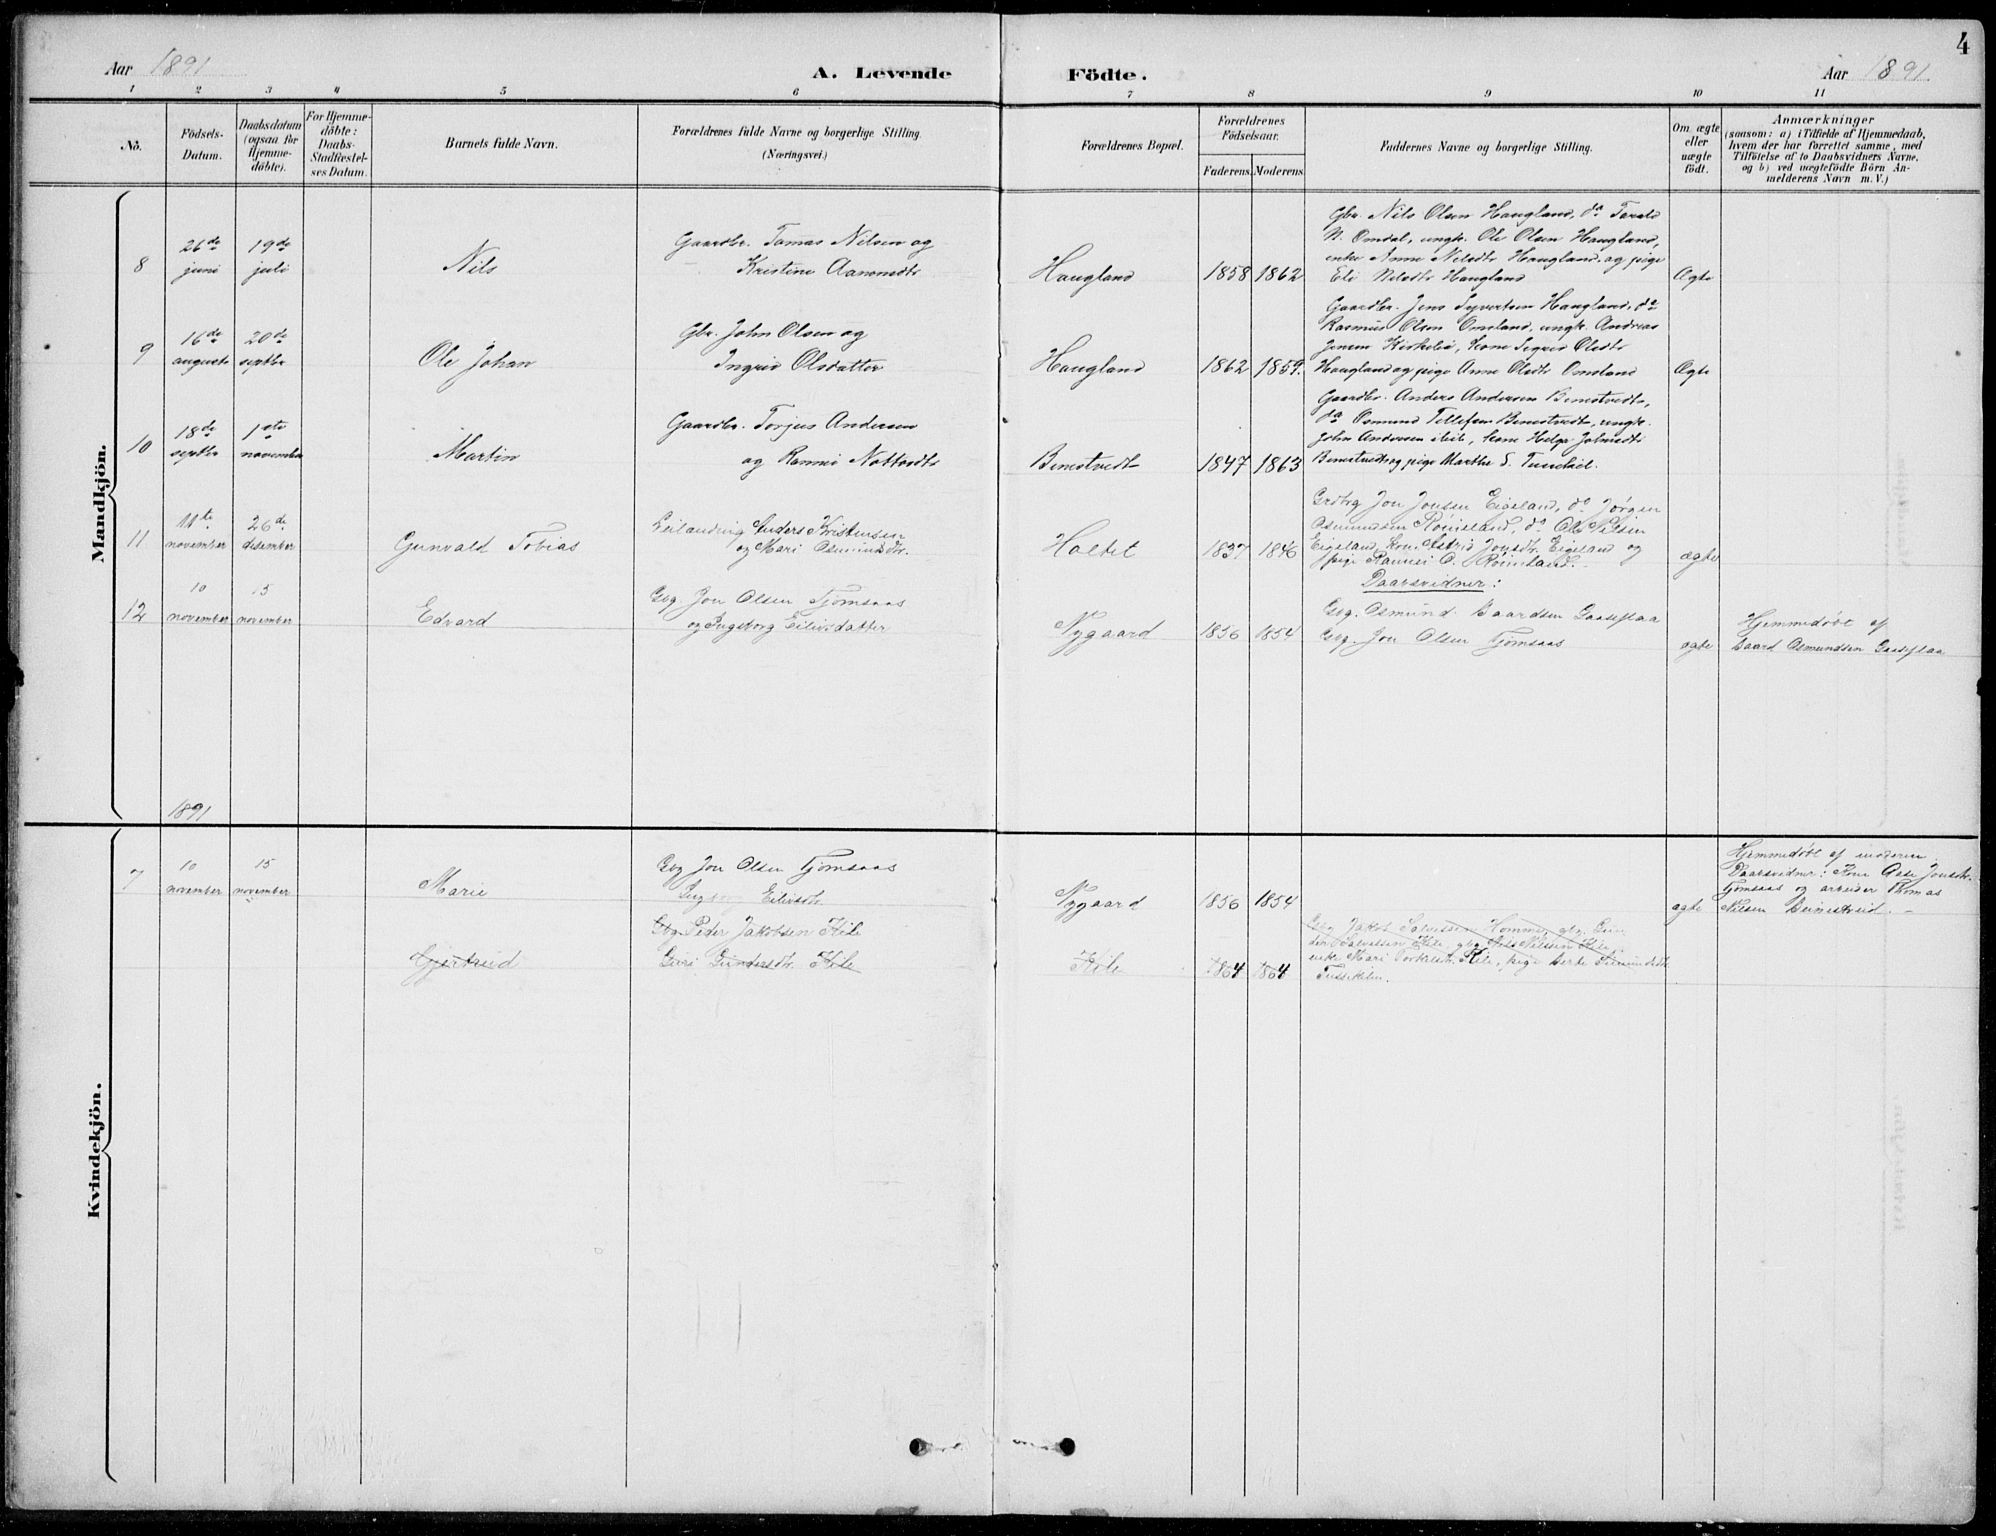 4
Aar 1891
A. Levende
Födte.
Aar 1891.
1 2 3 4 5 6 7 8 9 10 11
No.
Födsels-
Datum.
Daabsdatum
(ogsaa för
Hjemme-
döbte).
For Hjemme-
döbte:
Daabs-
Stadfæstel-
ses Datum.
Barnets fulde Navn.
Forældrenes fulde Navne og borgerlige Stilling.
(Næringsvei.)
Forældrenes Bopæl.
Forældrenes
Födselsaar.
Faderens. Moderens.
Faddernes Navne og borgerlige Stilling.
Om ægte
eller
uægte
födt.
Anmærkninger
(saasom: a) i Tilfælde af Hjemmedaab,
hvem der har forrettet samme, med
Tilföielse af to Daabsvidners Navne,
og b) ved uægtefödte Börn An-
melderens Navn m. V.)
Mandkjön.
8
26de
juni
19de
juli
Nils
Gaardbr. Tomas Nilsen og
Kristine Aanensdtr
Haugland
1858 1862
Gbr. Nils Olsen Haugland, do Terald
N. Omdal, ungk. Ole Olsen Haugland,
enke Anne Nilsdtr Haugland, og pige
Eli Nilsdtr Haugland
Ægte
9
16de
auguste
20de
septbr
Ole Johan
Gbr. John Olsen og
Ingrid Olsdatter
Haugland
1862 1859.
Gaardbr. Jens Syvertsen Haugland, do
Rasmus Olsen Omsland, ungk. Andreas
Jensen Kirkelid, kone Sigrid Olsdtr
Haugland og pige Anne Olsdtr Omsland
Ægte
10
18de
septbr
1ste
november
Martin
Gaardbr. Torjus Andersen
og Rannei Notto[dtr]
Benestvedt
1847 1863
Gaardbr. Anders Andersen Benestvedt,
do Osmund Tellefsen Benestvedt, ungk.
John Andersen ibid, kone Helge Johnsdtr
Benestvedt og pige Marthe S.
11
11te
november
26de
desember
Gunvald Tobias
Leilænding Anders Kristensen
og Mari Osmundsdtr.
Holtet
1837 1846
Grdbrg Jon Jonsen Eigeland, do Jørgen
Osmundsen Røineland, do Ole Nilsen
Eigeland, kon. Astrid Jonsdtr. Eigeland og
pige Rannei O. Røineland.
ægte
12
10
november
15
november
Edvard
Gbg. Jon Olsen Tjomsaas
og Ingeborg Eilivsdatter
Nygaard
1856 1854
Daabsvidner:
Gbg. Osmund Baardsen Gaaseflaa
Gbg. Jon Olsen Tjomsaas
ægte
Hjemmedøbt af
Baard Osmundsen Gaaseflaa
1891
Kvindekjön.
7
10
november
15
november
Marie
Gbg Jon Olsen Tjomsaas
Eilivsdtr.
Nygaard
1856 1854
ægte
Hjemmedøbt af moderen
Daabsvidner: Kone Aase Jonsdtr.
Tjomsaas og arbeider Thomas
Nilsen Beinestveid.
Gjertrud
Gbg Peder Jakobsen Kile
Guri Gundersdtr. Kile
Kile
1864 1864
Gbg Jakob Salvesen Homme, gbg. Gun
der Salvesen Kile, gbg Nils Nilsen Kile,
enke Mari Torkelsdtr. Kile, pige Berte